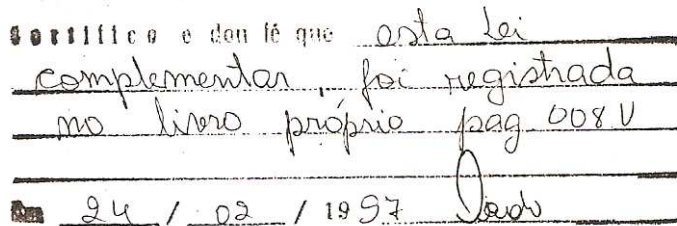 Certifico e dou fé que esta Lei
complementar, foi registrada
no livro próprio pag 008 V
Em 24 / 02 / 1997